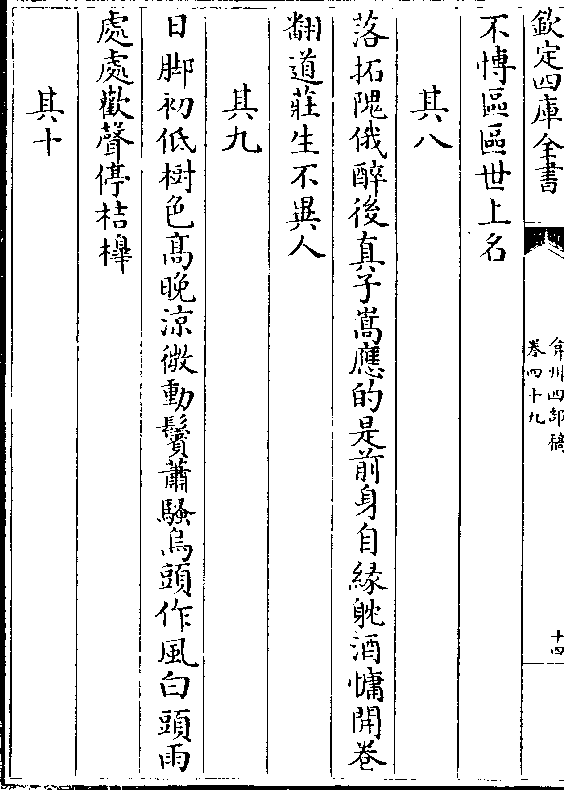 欽定四庫全書
弇州四部稿
卷四十九
十四
不慱區區世上名
其八
落拓隗俄醉後真子嵩應的是前身自緣躭酒慵開卷
翻道莊生不異人
其九
日脚初低樹色髙晚涼微動鬢蕭騷烏頭作風白頭雨
處處歡聲停桔橰
其十